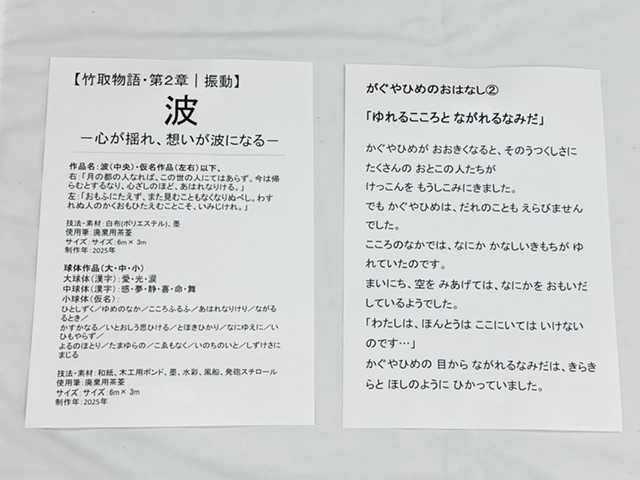 【竹取物語・第2章｜振動】
波
－心が揺れ、想いが波になる－
作品名：波（中央）・仮名作品（左右）以下、
右：「月の都の人なれば、この世の人にてはあらず。今は帰
らむとするなり、心ざしのほど、あはれなりける。」
左：「おもふにたえず、また見むこともなくなりぬべし。わす
れぬ人のかくおもひたえむことこそ、いみじけれ。」
技法・素材：白布（ポリエステル）、墨
使用筆：廃業用茶筌
サイズ：サイズ：6m× 3m
制作年：2025年
球体作品（大・中・小）
大球体（漢字）：愛・光・涙
中球体（漢字）：感・夢・静・喜・命・舞
小球体（仮名）：
ひとしずく／ゆめのなか／こころふるふ／あはれなりけり／ながる
るとき／
かすかなる／いとおしう思ひける／とほきひかり／なにゆえに／い
ひもやらず／
よるのほとり／たまゆらの／こゑもなく／いのちのいと／しずけさに
まじる
技法・素材：和紙、木工用ボンド、墨、水彩、風船、発砲スチロール
使用筆：廃業用茶筌
サイズ：サイズ：6m× 3m
制作年：2025年
がぐやひめのおはなし②
「ゆれるこころと ながれるなみだ」
かぐやひめが おおきくなると、そのうつくしさに
たくさんの おとこの人たちが
けっこんを もうしこみにきました。
でも かぐやひめは、だれのことも えらびません
でした。
こころのなかでは、なにか かなしいきもちが ゆ
れていたのです。
まいにち、空を みあげては、なにかを おもいだ
しているようでした。
「わたしは、ほんとうは ここにいては いけない
のです…」
かぐやひめの 目から ながれるなみだは、きらき
らと ほしのように ひかっていました。